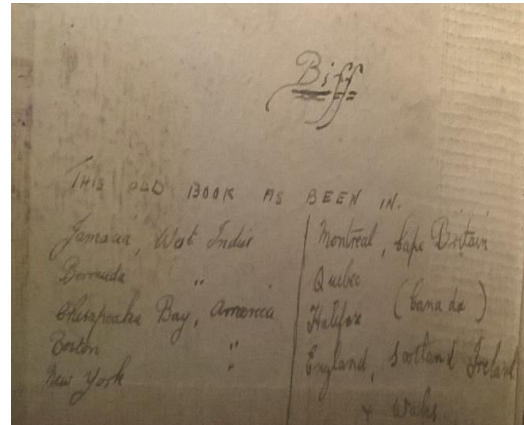 Biff
THIS OLD BOOK AS BEEN IN.
Jamaica, West Indies
Bermuda "
Chesapeake Bay, America
Boston "
New York "
Montreal, Cape Britain
Quebec
Halifax (Canada)
England, Scotland Ireland
& Wales.